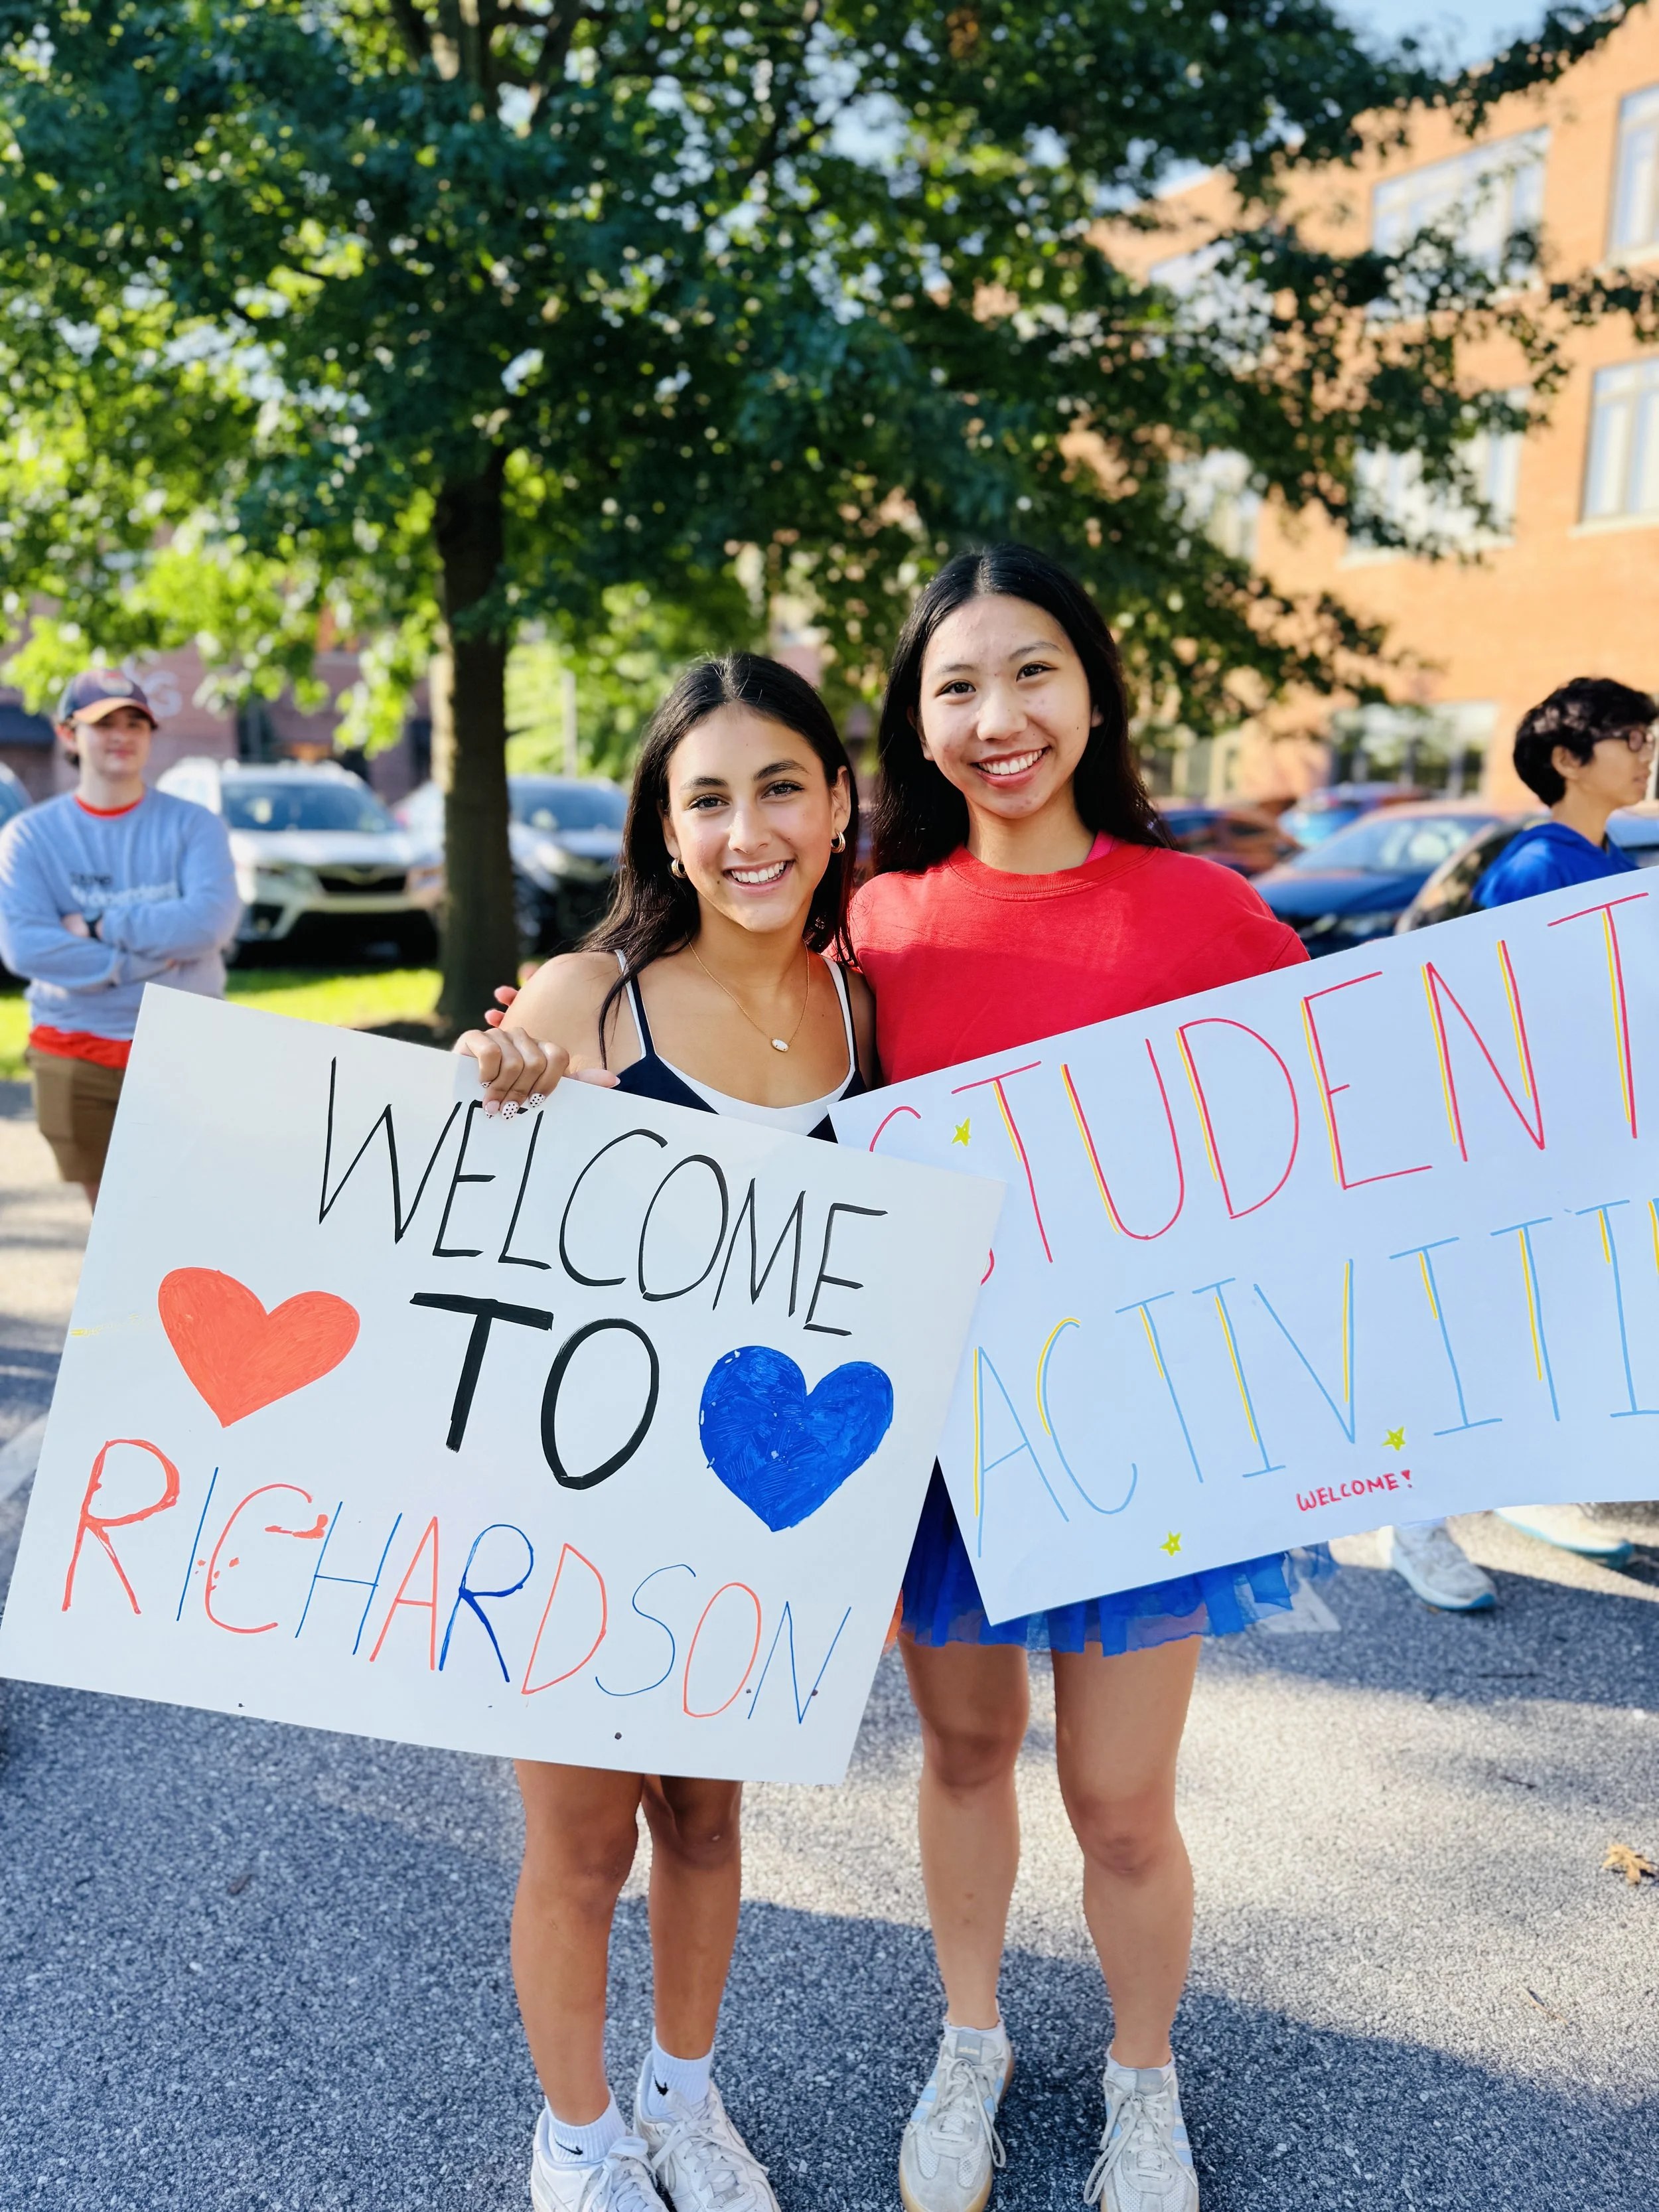 WELCOME
TO
RICHARDSON
STUDENT
ACTIVITI
WELCOME!